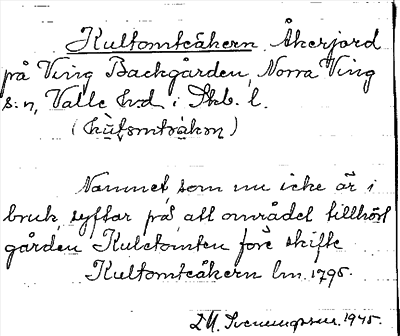 Kultomteåkern Åkerjord
på Ving Backgården, Norra Ving
s:n, Valle hd i Skb. l.
Namnet, som nu icke är i
bruk, syftar på, att området tillhört
gården Kultomten före skifte
Kultomteåkern lm. 1795.
Sveningsson 1945.